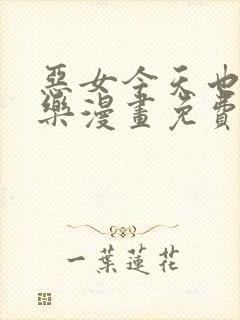 惡女今天也
樂漫畫免費
一葉蓮花